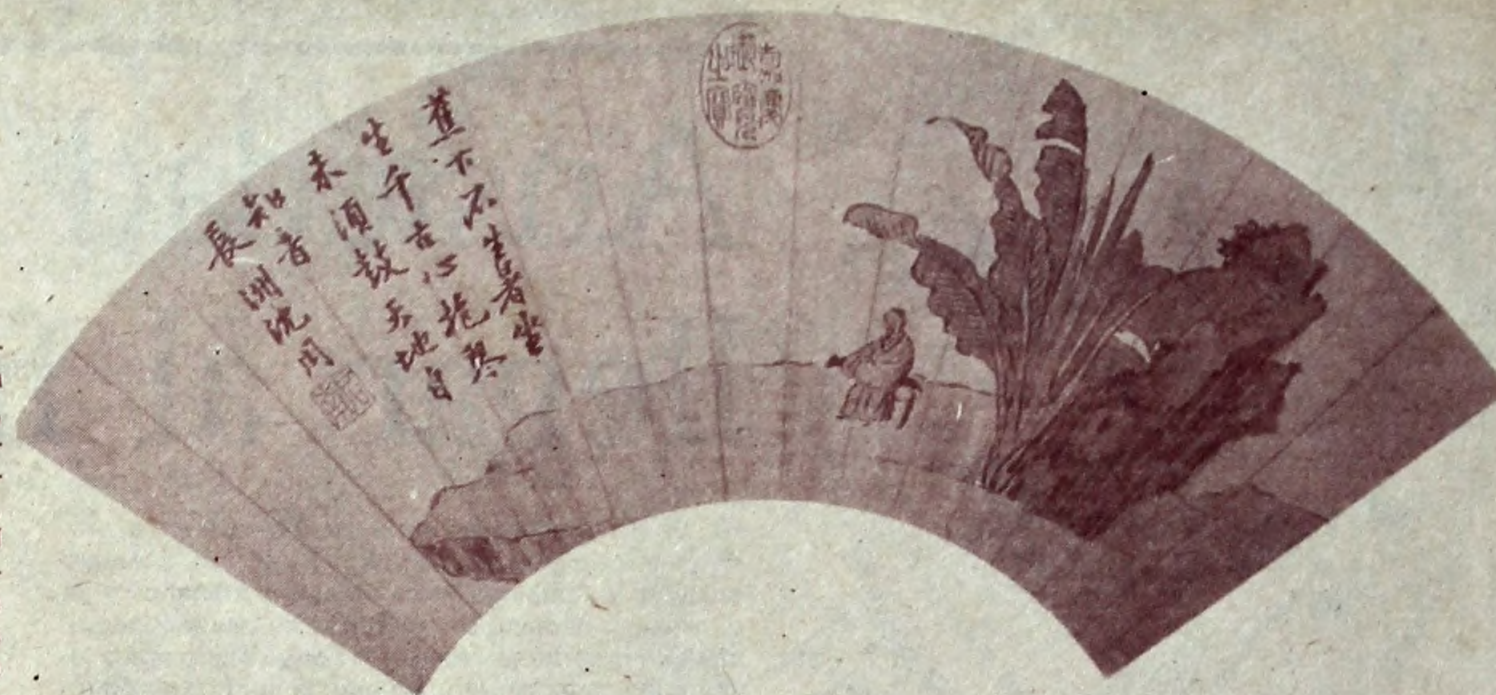 嘉慶
御覽
之寶
蕉下不生暑坐
生千古心抱琴
未須鼓天地自
知音
長洲沈周